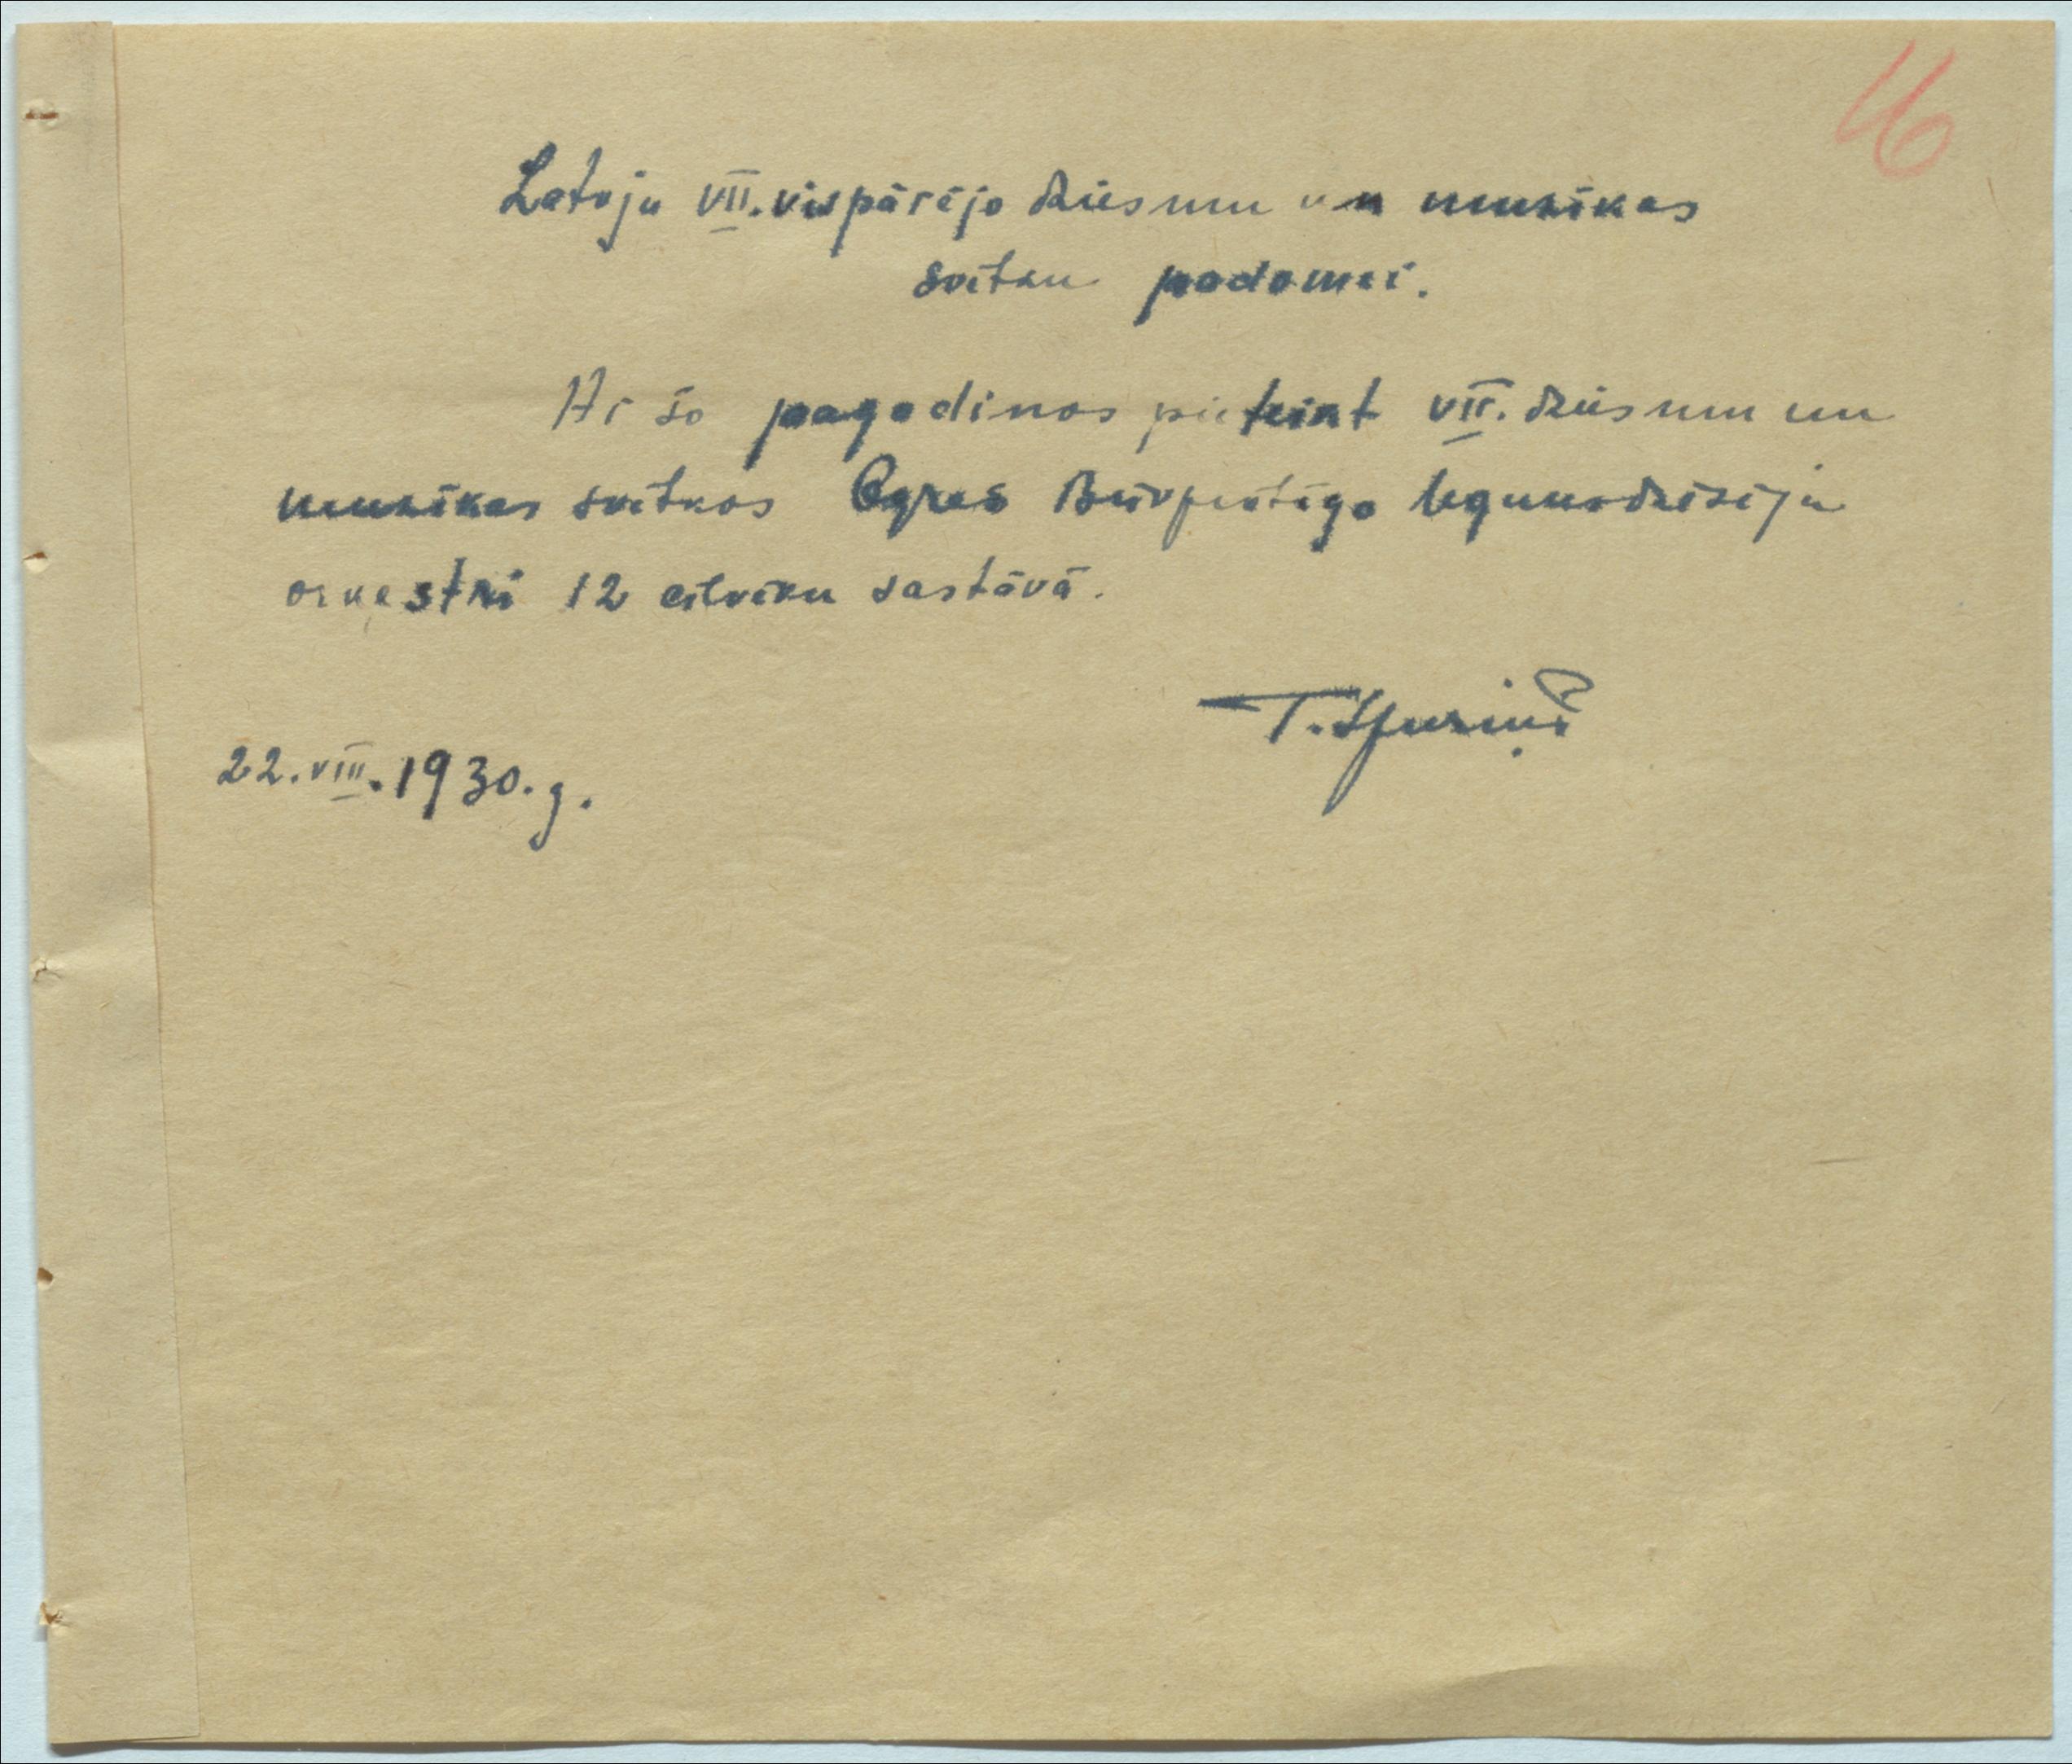 16
Latvju VII. vispārējo dziesmu un muzikas
svētku padomei.
Ar šo pagodinos pieteikt VII. dziesmu un
muzikas svētkos Ogres Brīvprātīgo Ugunsdzēsēju
orķestri 12 cilvēku sastāvā.
T. Spuriņš
22. VIII. 1930. g.